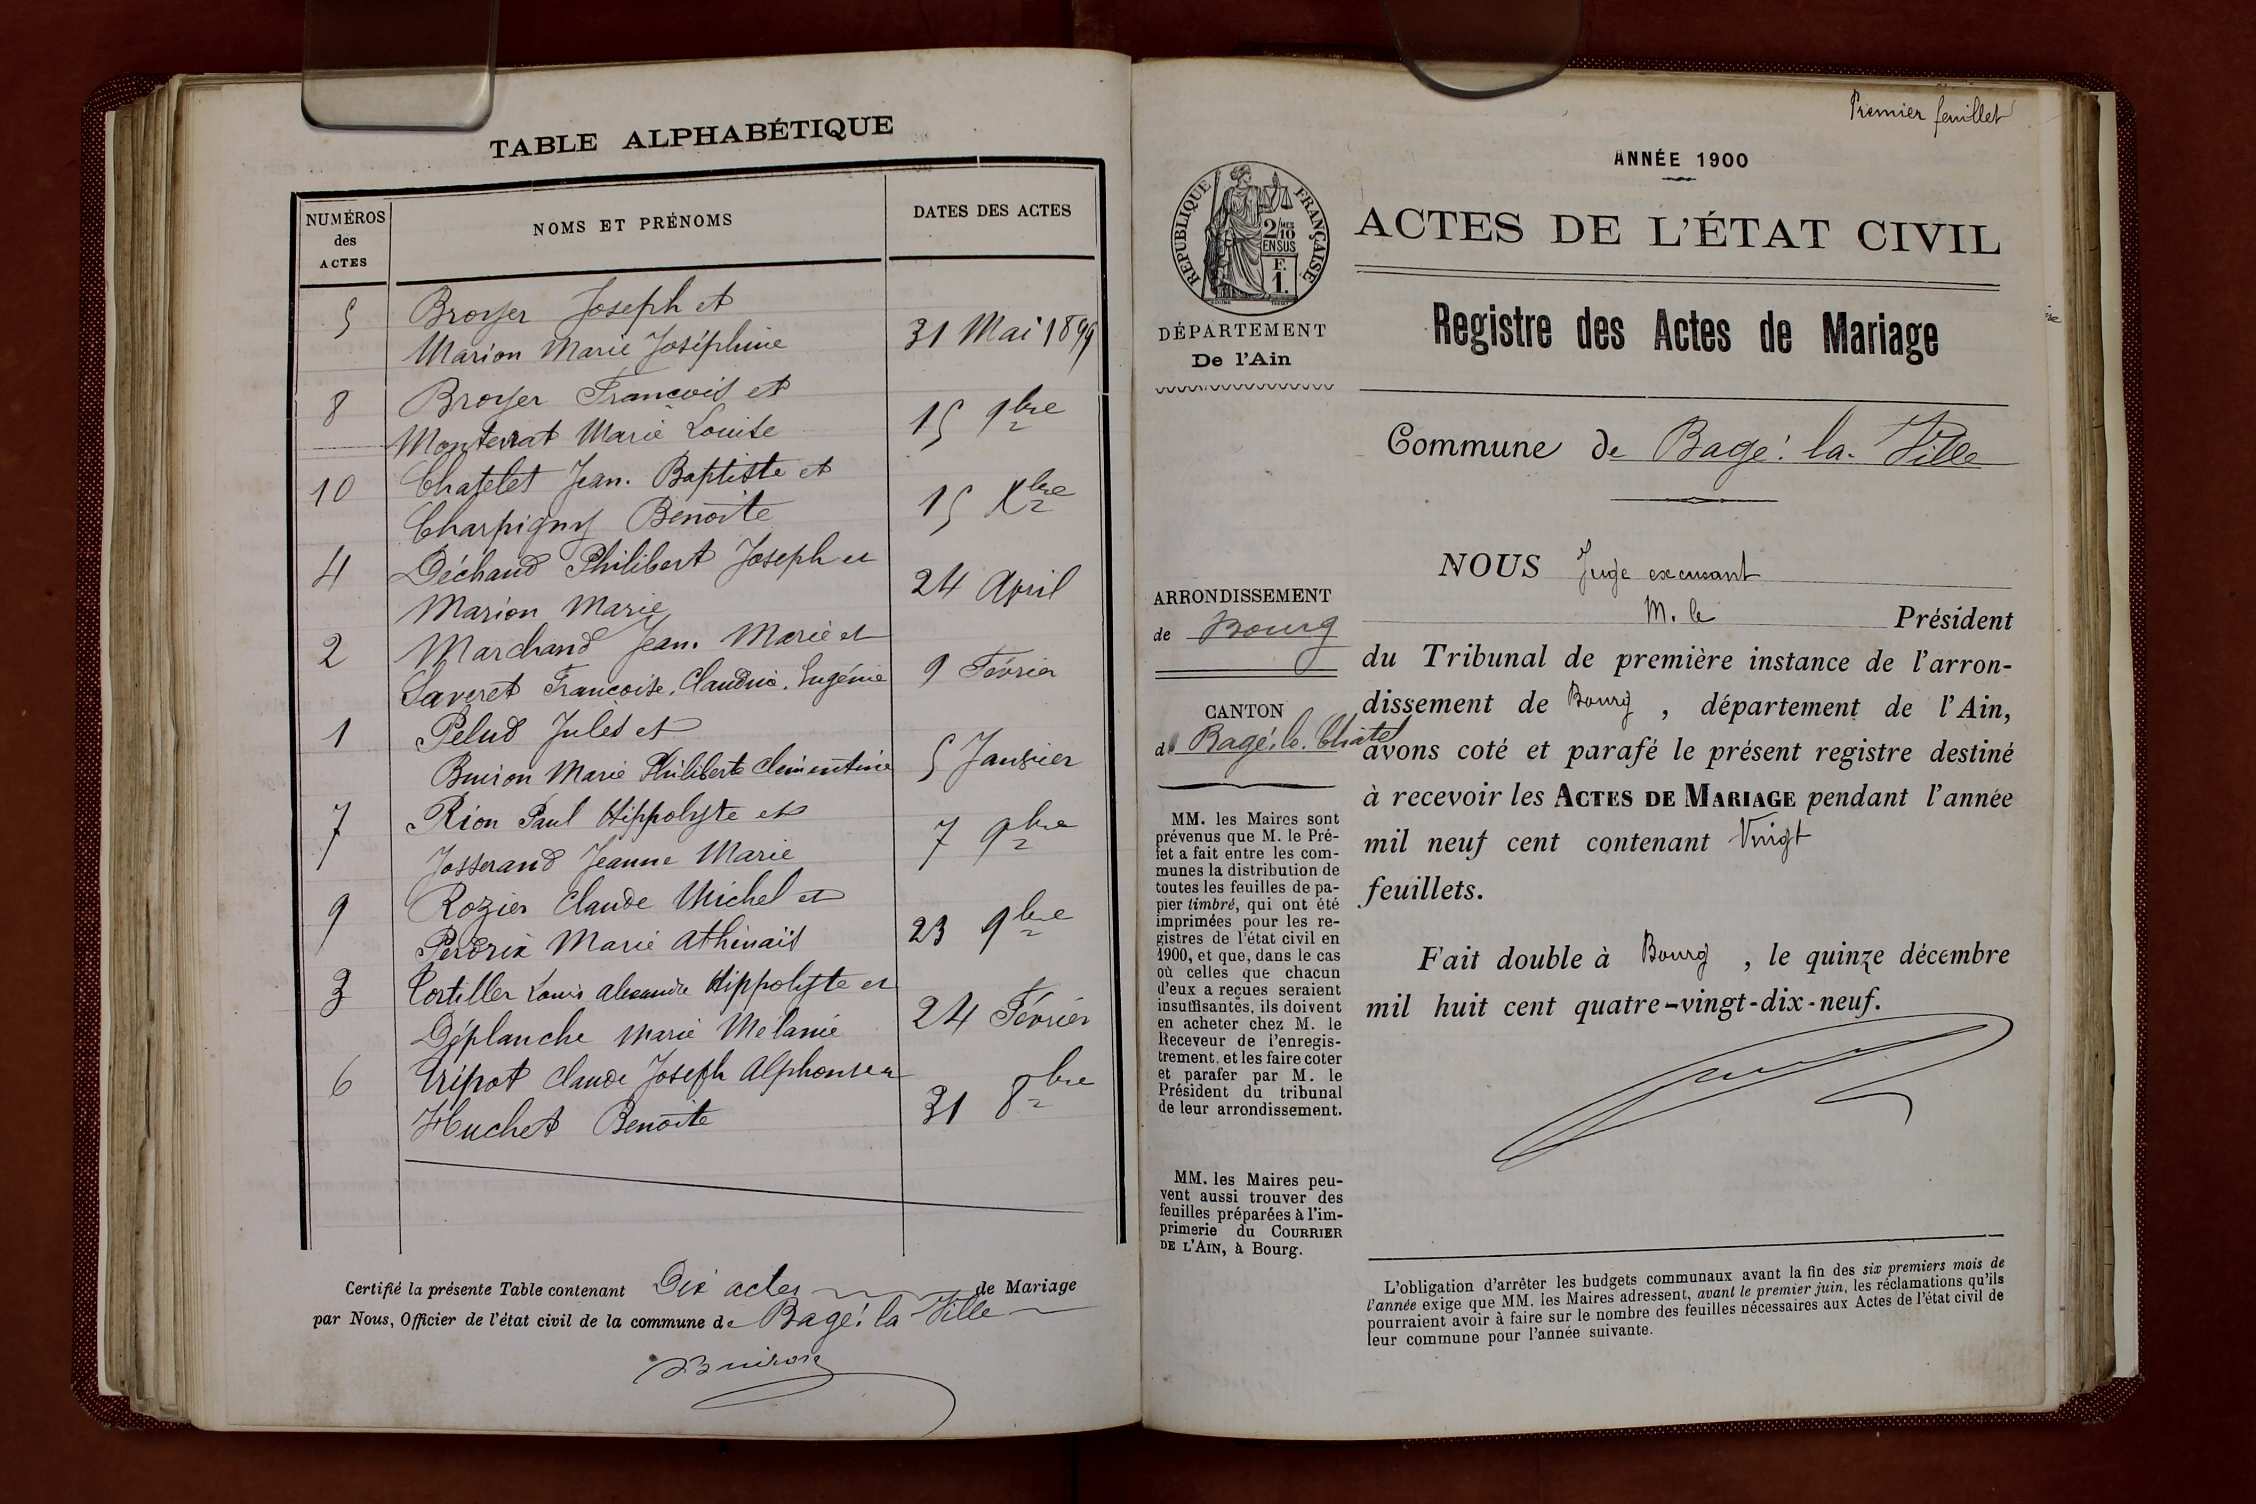 TABLE ALPHABÉTIQUE
NUMÉROS des ACTES
NOMS ET PRÉNOMS
DATES DES ACTES
5 Broyer Joseph et
Marion Marie Joséphine 31 Mai 1899
8 Broyer Francois et
Monterrat Marie Louise 15 9bre
10 Chatelet Jean-Baptiste et
Charpigny Benoite 15 Xbre
4 Déchaud Philibert Joseph et
Marion Marie 24 April
2 Marchand Jean-Marie et
Laveret Francoise, Claudia, Eugénie 9 Février
1 Pelud Jules et
Buiron Marie Philiberte Clémentine 5 Janvier
7 Rion Paul Hippolyte et
Josserand Jeanne Marie 7 9bre
9 Rozier Claude Michel et
Perdrix Marie Athénaïs 23 9bre
3 Tortiller Louis Alexandre Hippolyte et
Déplanche Marie Mélanie 24 Février
6 Tripot Claude Joseph Alphonse et
Huchet Benoite 31 8bre
Certifié la présente Table contenant Dix actes de Mariage
par Nous, Officier de l'état civil de la commune de Bagé-la-Ville
Buiron
Premier feuillet
ANNÉE 1900
RÉPUBLIQUE FRANÇAISE
2/10
EN SUS
F.
1.
ACTES DE L'ÉTAT CIVIL
DÉPARTEMENT
De l'Ain
Registre des Actes de Mariage
Commune de Bagé-la-Ville
ARRONDISSEMENT
de Bourg
CANTON
de Bagé-le-Châtel
MM. les Maires sont
prévenus que M. le Pré-
fet a fait entre les com-
munes la distribution de
toutes les feuilles de pa-
pier timbré, qui ont été
imprimées pour les re-
gistres de l'état civil en
1900, et que, dans le cas
où celles que chacun
d'eux a reçues seraient
insuffisantes, ils doivent
en acheter chez M. le
Receveur de l'enregis-
trement, et les faire coter
et parafer par M. le
Président du tribunal
de leur arrondissement.
MM. les Maires peu-
vent aussi trouver des
feuilles préparées à l'im-
primerie du COURRIER
DE L'AIN, à Bourg.
NOUS Juge excusant
M. le Président
du Tribunal de première instance de l'arron-
dissement de Bourg, département de l'Ain,
avons coté et parafé le présent registre destiné
à recevoir les ACTES DE MARIAGE pendant l'année
mil neuf cent contenant Vingt
feuillets.
Fait double à Bourg, le quinze décembre
mil huit cent quatre-vingt-dix-neuf.
L'obligation d'arrêter les budgets communaux avant la fin des six premiers mois de
l'année exige que MM. les Maires adressent, avant le premier juin, les réclamations qu'ils
pourraient avoir à faire sur le nombre des feuilles nécessaires aux Actes de l'état civil de
leur commune pour l'année suivante.